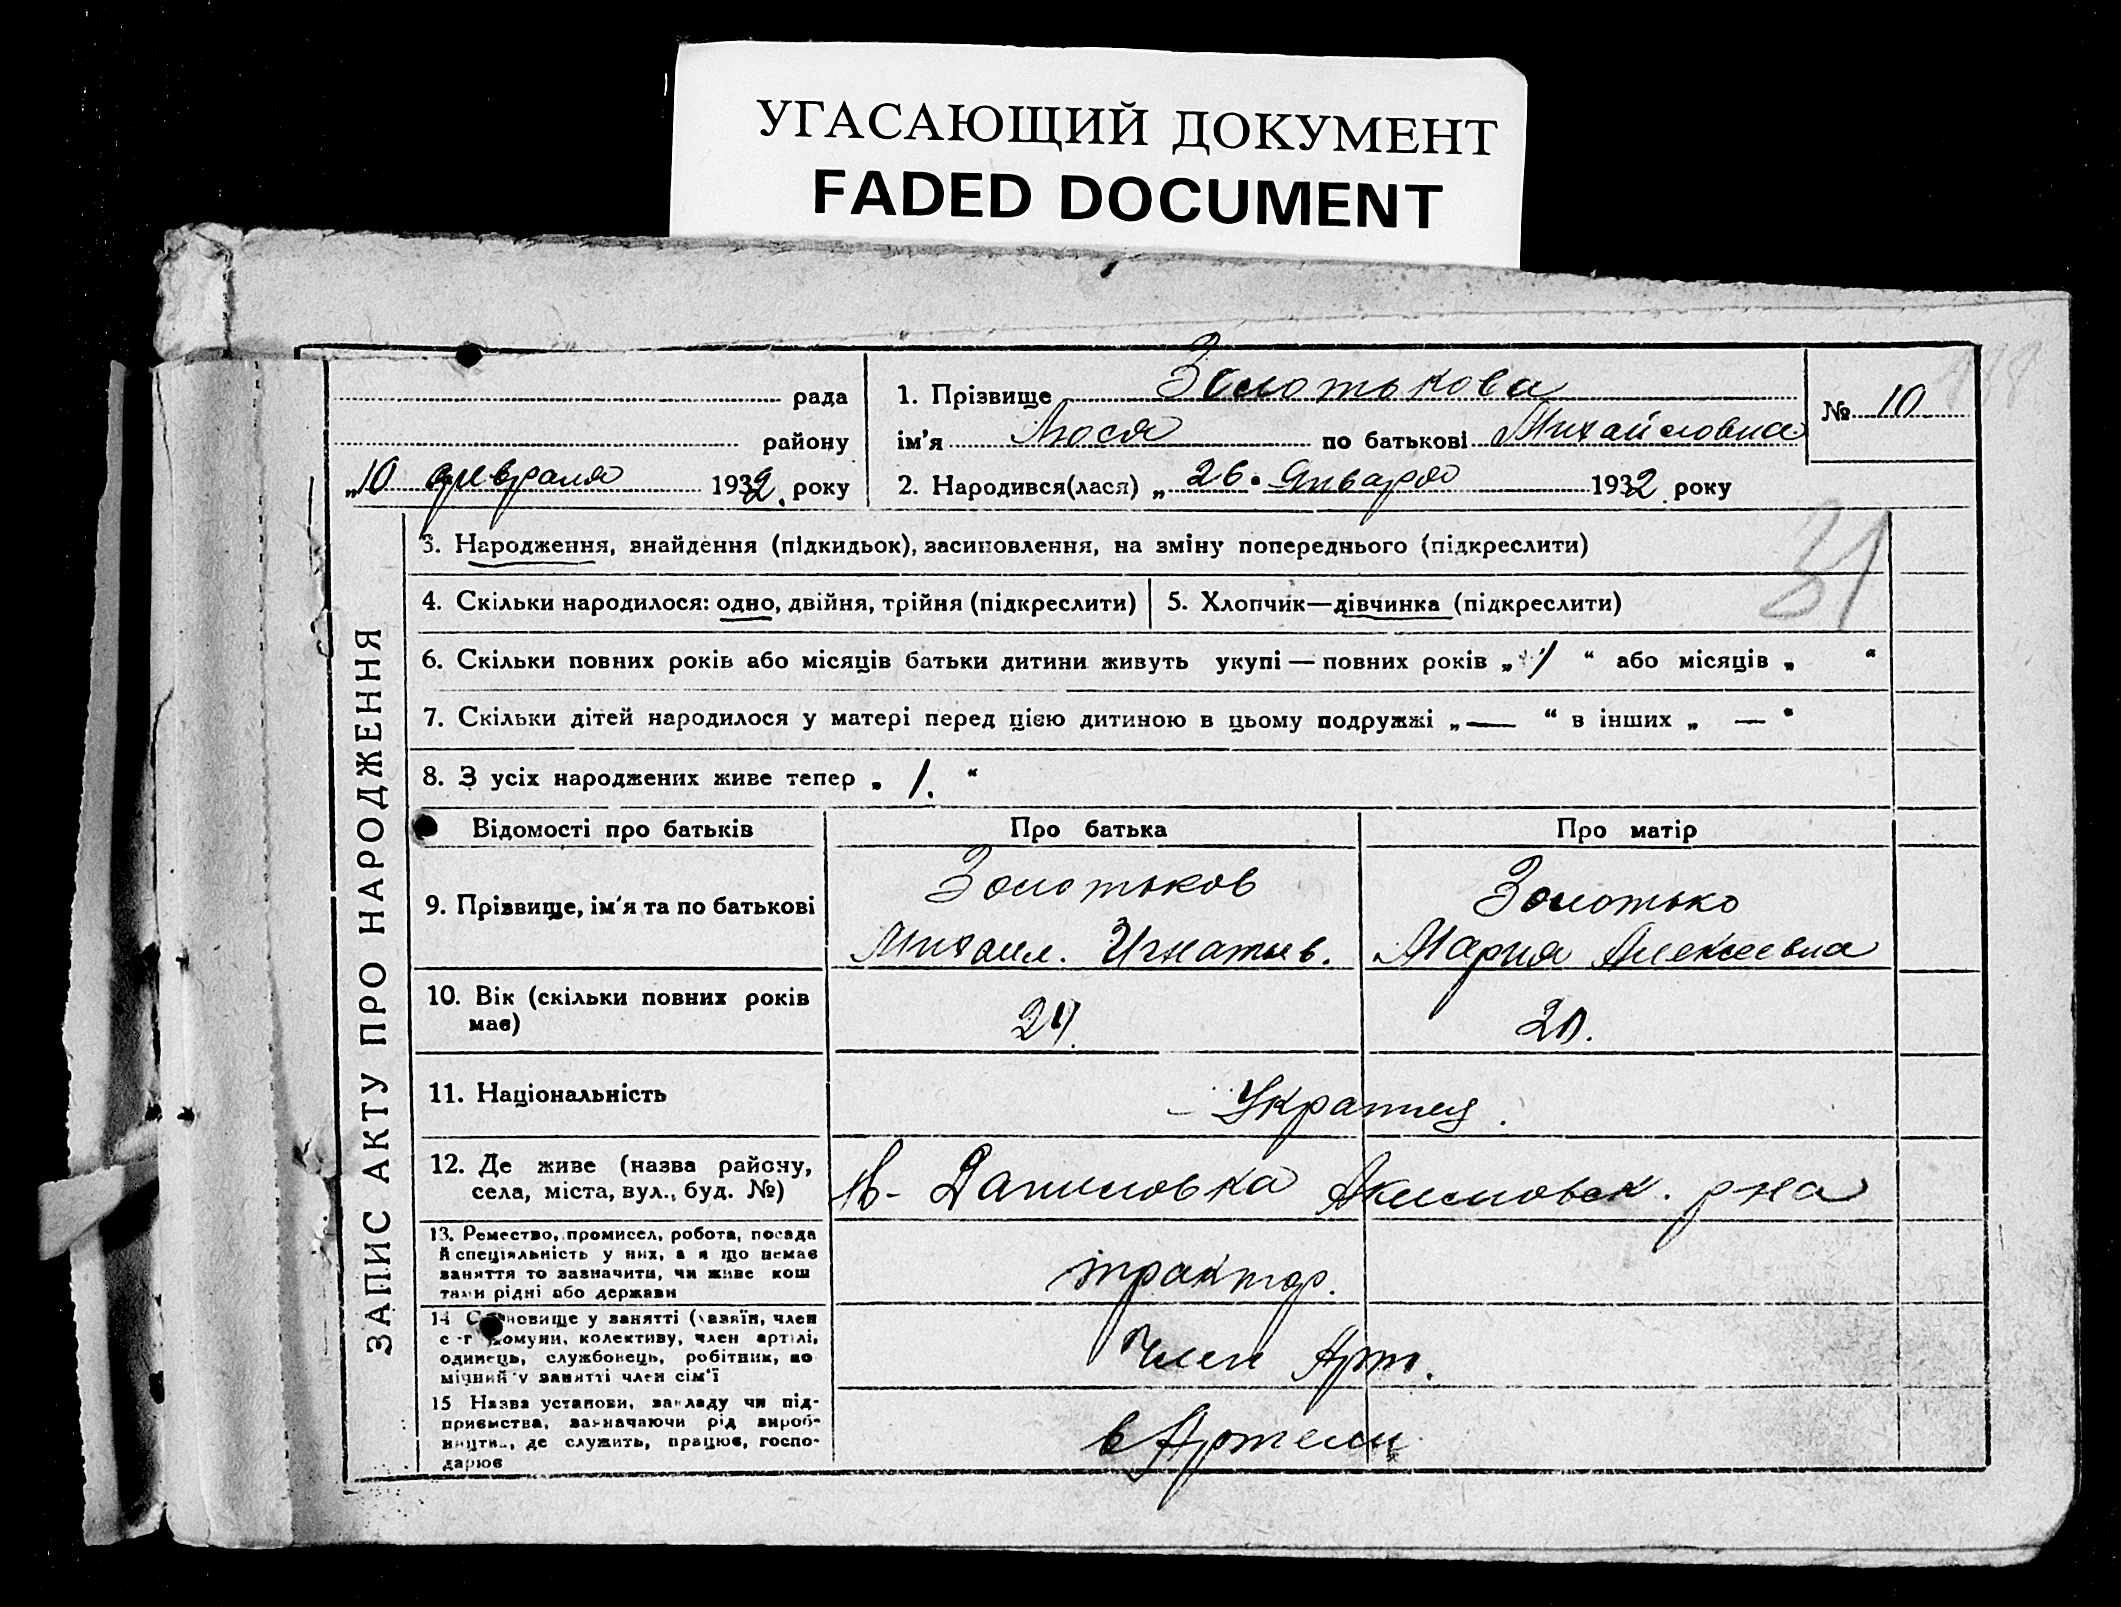 УГАСАЮЩИЙ ДОКУМЕНТ
FADED DOCUMENT
рада
району
„10 февраля 1932. року
1. Прізвище Золотькова
ім’я Люся по батькові Михайловна
2. Народився(лася) „26“ Января 1932 року
№ 10
31
ЗАПИС АКТУ ПРО НАРОДЖЕННЯ
3. Народження, знайдення (підкидьок), засиновлення, на зміну попереднього (підкреслити)
4. Скільки народилося: одно, двійня, трійня (підкреслити)
5. Хлопчик—дівчинка (підкреслити)
6. Скільки повних років або місяців батьки дитини живуть укупі — повних років „ 1 “ або місяців „ “
7. Скільки дітей народилося у матері перед цією дитиною в цьому подружжі „ — “ в інших „ — “
8. З усіх народжених живе тепер „ 1. “
Відомості про батьків Про батька Про матір
9. Прізвище, ім’я та по батькові
Золотьков
Михаил. Игнатьев.
Золотько
Мария Алексеевна
10. Вік (скільки повних років
має)
24. 20.
11. Національність
– Украинц.
12. Де живе (назва району,
села, міста, вул., буд. №)
Даниловка Акимовск. рна
13. Ремество, промисел, робота, посада
й спеціяльність у них, а я що немає
заняття то зазначити, чи живе кош
тами рідні або держави
трактор.
14 Становище у занятті (хазяїн, член
с-г комуни, колективу, член артілі,
одинець, службовець, робітник, по
мічний у занятті член сім’ї
Член Арт.
15 Назва установи, закладу чи під-
приємства, зазначаючи рід вироб-
ництва, де служить, працює, госпо-
дарює
в Артели